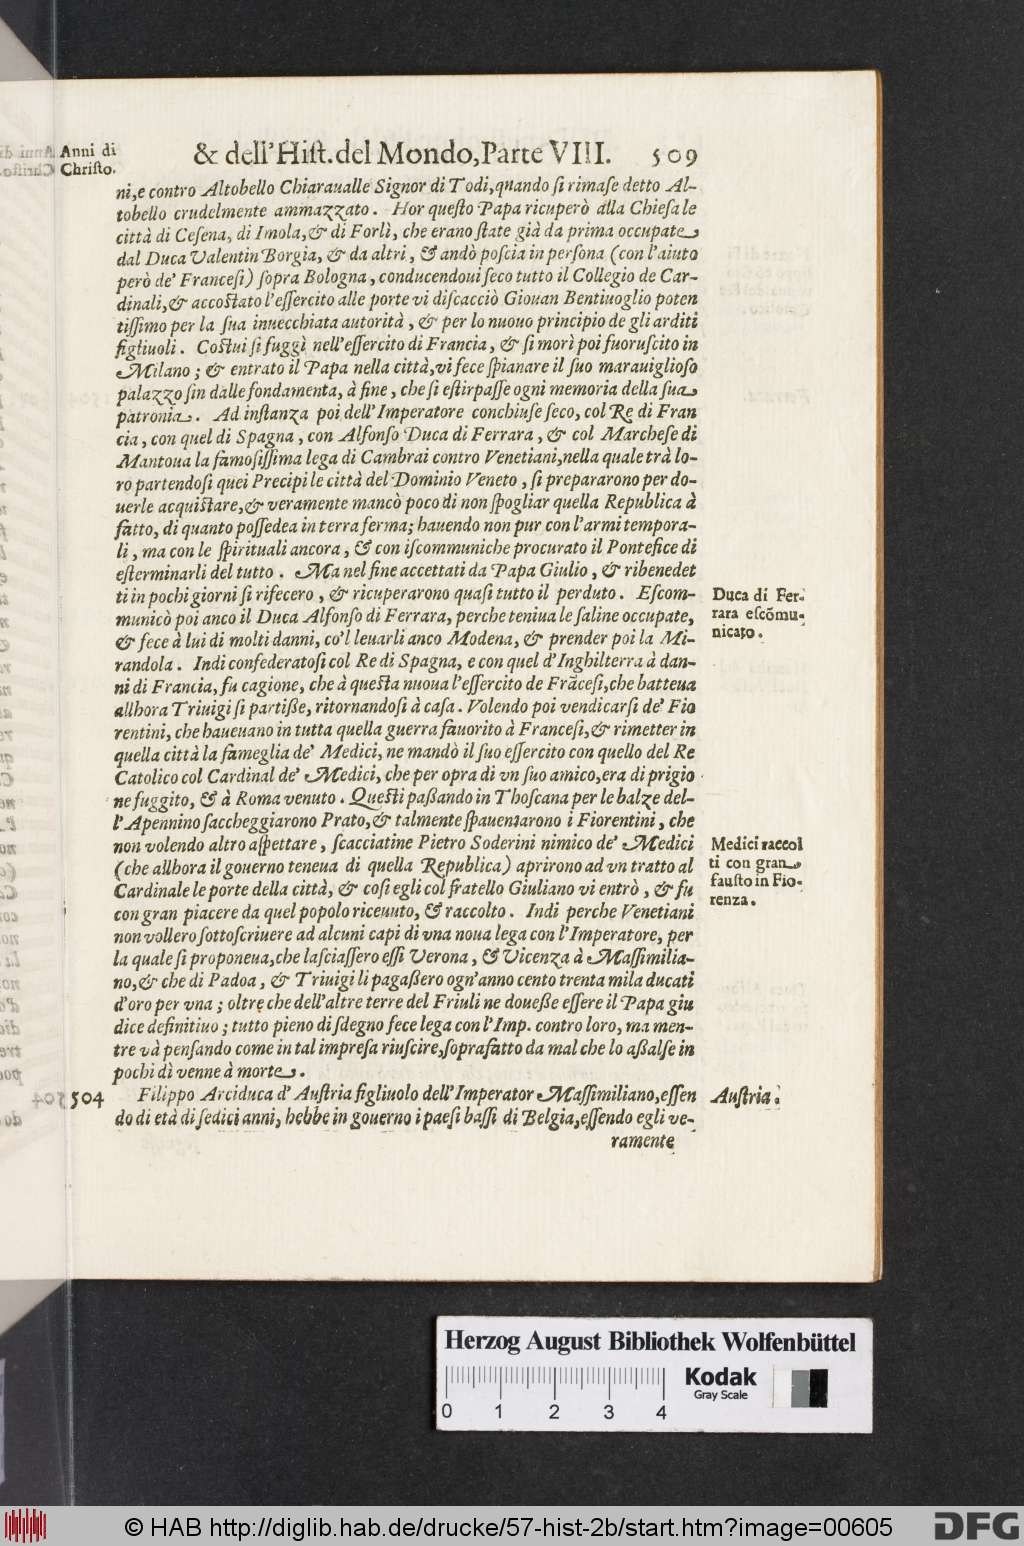 Anni di
Chriſto.
& dell'Hiſt. del Mondo, Parte VIII. 509
ni, e contro Altobello Chiaraualle Signor di Todi, quando ſi rimaſe detto Al-
tobello crudelmente ammazzato. Hor queſto Papa ricuperò alla Chieſa le
città di Ceſena, di Imola, & di Forlì, che erano ſtate già da prima occupate
dal Duca Valentin Borgia, & da altri, & andò poſcia in perſona (con l'aiuto
però de' Franceſi) ſopra Bologna, conducendoui ſeco tutto il Collegio de Car-
dinali, & accoſtato l'eſſercito alle porte vi diſcacciò Giouan Bentiuoglio poten
tiſſimo per la ſua inuecchiata autorità, & per lo nuouo principio de gli arditi
figliuoli. Coſtui ſi fuggì nell'eſſercito di Francia, & ſi morì poi fuoruſcito in
Milano; & entrato il Papa nella città, vi fece ſpianare il ſuo marauiglioſo
palazzo ſin dalle fondamenta, à fine, che ſi eſtirpaſſe ogni memoria della ſua
patronia. Ad inſtanza poi dell'Imperatore conchiuſe ſeco, col Re di Fran
cia, con quel di Spagna, con Alfonſo Duca di Ferrara, & col Marcheſe di
Mantoua la famoſiſſima lega di Cambrai contro Venetiani, nella quale trà lo-
ro partendoſi quei Precipi le città del Dominio Veneto, ſi prepararono per do-
uerle acquiſtare, & veramente mancò poco di non ſpogliar quella Republica à
fatto, di quanto poſſedea in terra ferma; hauendo non pur con l'armi tempora-
li, ma con le ſpirituali ancora, & con iſcommuniche procurato il Pontefice di
eſterminarli del tutto. Ma nel fine accettati da Papa Giulio, & ribenedet
ti in pochi giorni ſi rifecero, & ricuperarono quaſi tutto il perduto. Eſcom-
municò poi anco il Duca Alfonſo di Ferrara, perche teniua le ſaline occupate,
& fece à lui di molti danni, co'l leuarli anco Modena, & prender poi la Mi-
randola. Indi confederatoſi col Re di Spagna, e con quel d'Inghilterra à dan-
ni di Francia, fu cagione, che à queſta nuoua l'eſſercito de Frãceſi, che batteua
allhora Triuigi ſi partiße, ritornandoſi à caſa. Volendo poi vendicarſi de' Fio
rentini, che haueuano in tutta quella guerra fauorito à Franceſi, & rimetter in
quella città la fameglia de' Medici, ne mandò il ſuo eſſercito con quello del Re
Catolico col Cardinal de' Medici, che per opra di vn ſuo amico, era di prigio
ne fuggito, & à Roma venuto. Queſti paßando in Thoſcana per le balze del-
l'Apennino ſaccheggiarono Prato, & talmente ſpauentarono i Fiorentini, che
non volendo altro aſpettare, ſcacciatine Pietro Soderini nimico de' Medici
(che allhora il gouerno teneua di quella Republica) aprirono ad vn tratto al
Cardinale le porte della città, & coſi egli col fratello Giuliano vi entrò, & fu
con gran piacere da quel popolo riceuuto, & raccolto. Indi perche Venetiani
non vollero ſottoſcriuere ad alcuni capi di vna noua lega con l'Imperatore, per
la quale ſi proponeua, che laſciaſſero eſſi Verona, & Vicenza à Maſſimilia-
no, & che di Padoa, & Triuigi li pagaßero ogn'anno cento trenta mila ducati
d'oro per vna; oltre che dell'altre terre del Friuli ne doueße eſſere il Papa giu
dice definitiuo; tutto pieno di ſdegno fece lega con l'Imp. contro loro, ma men-
tre và penſando come in tal impreſa riuſcire, ſoprafatto da mal che lo aßalſe in
pochi dì venne à morte.
504 Filippo Arciduca d' Auſtria figliuolo dell'Imperator Maſſimiliano, eſſen
do di età di ſedici anni, hebbe in gouerno i paeſi baſſi di Belgia, eſſendo egli ve-
ramente
Duca di Fer-
rara eſcõmu-
nicato.
Medici raccol
ti con gran
fauſto in Fio-
renza.
Auſtria.
Herzog August Bibliothek Wolfenbüttel
Kodak
Gray Scale
0 1 2 3 4
© HAB http://diglib.hab.de/drucke/57-hist-2b/start.htm?image=00605
DFG